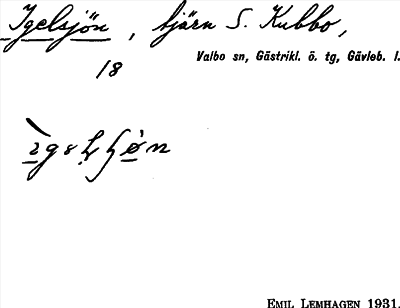 Igelsjön, tjärn S. Kubbo,
18
Valbo sn, Gästrikl. ö. tg, Gävleb. l.
EMIL LEMHAGEN 1931.